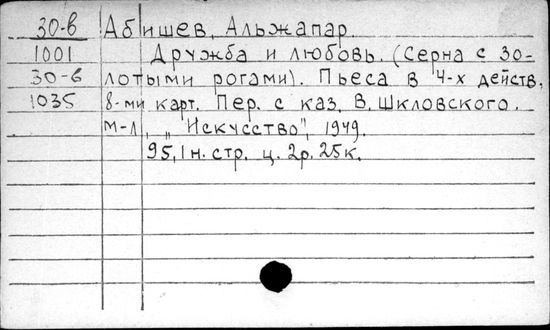 30-в Абишев, Альжапар.
1001 Дружба и любовь. (Серна с зо-
30-в лотыми рогами). Пьеса в 4-х действ.
1035 8-ми карт. Пер. с каз. В. Шкловского.
М-Л, "Искусство", 1949.
95,1 н. стр. ц. 2р. 25к.